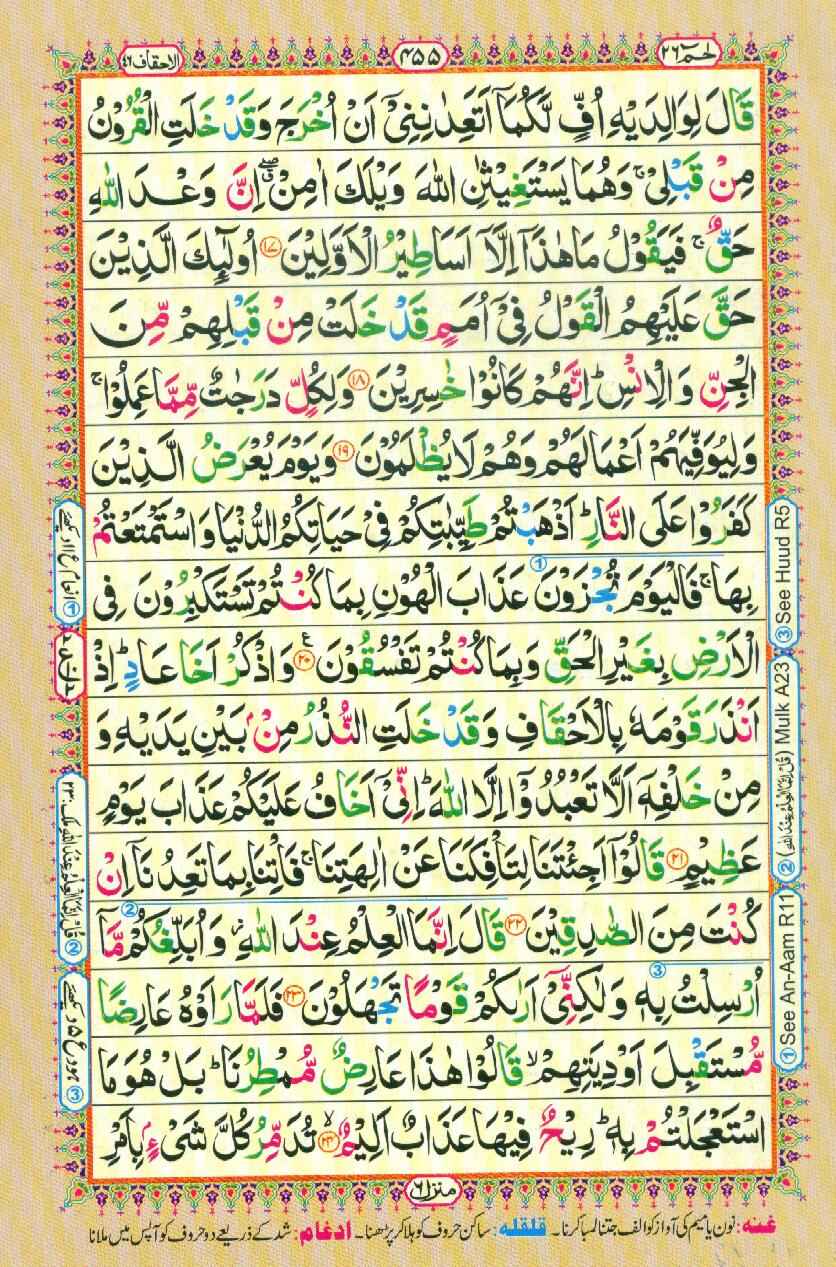 الاحقاف ٤٦
٤٥٥
حٰمٓ ٢٦
قَالَ لِوَالِدَيْهِ اُفٍّ لَّكُمَاۤ اَتَعِدٰنِنِيْۤ اَنْ اُخْرَجَ وَقَدْ خَلَتِ الْقُرُوْنُ
مِنْ قَبْلِيْ ۚ وَهُمَا يَسْتَغِيْثٰنِ اللّٰهَ وَيْلَكَ اٰمِنْ ۖ اِنَّ وَعْدَ اللّٰهِ
حَقٌّ ۚ فَيَقُوْلُ مَا هٰذَاۤ اِلَّاۤ اَسَاطِيْرُ الْاَوَّلِيْنَ ﴿١٧﴾ اُولٰٓئِكَ الَّذِيْنَ
حَقَّ عَلَيْهِمُ الْقَوْلُ فِيْۤ اُمَمٍ قَدْ خَلَتْ مِنْ قَبْلِهِمْ مِّنَ
الْجِنِّ وَالْاِنْسِ ؕ اِنَّهُمْ كَانُوْا خٰسِرِيْنَ ﴿١٨﴾ وَلِكُلٍّ دَرَجٰتٌ مِّمَّا عَمِلُوْا ۚ
وَلِيُوَفِّيَهُمْ اَعْمَالَهُمْ وَهُمْ لَا يُظْلَمُوْنَ ﴿١٩﴾ وَيَوْمَ يُعْرَضُ الَّذِيْنَ
كَفَرُوْا عَلَى النَّارِ ؕ اَذْهَبْتُمْ طَيِّبٰتِكُمْ فِيْ حَيَاتِكُمُ الدُّنْيَا وَاسْتَمْتَعْتُمْ
بِهَا ۚ فَالْيَوْمَ تُجْزَوْنَ عَذَابَ الْهُوْنِ بِمَا كُنْتُمْ تَسْتَكْبِرُوْنَ فِي
الْاَرْضِ بِغَيْرِ الْحَقِّ وَبِمَا كُنْتُمْ تَفْسُقُوْنَ ﴿٢٠﴾ وَاذْكُرْ اَخَا عَادٍ ؕ اِذْ
اَنْذَرَ قَوْمَهٗ بِالْاَحْقَافِ وَقَدْ خَلَتِ النُّذُرُ مِنْۢ بَيْنِ يَدَيْهِ وَ
مِنْ خَلْفِهٖۤ اَلَّا تَعْبُدُوْۤا اِلَّا اللّٰهَ ؕ اِنِّيْۤ اَخَافُ عَلَيْكُمْ عَذَابَ يَوْمٍ
عَظِيْمٍ ﴿٢١﴾ قَالُوْۤا اَجِئْتَنَا لِتَاْفِكَنَا عَنْ اٰلِهَتِنَا ۚ فَاْتِنَا بِمَا تَعِدُنَاۤ اِنْ
كُنْتَ مِنَ الصّٰدِقِيْنَ ﴿٢٢﴾ قَالَ اِنَّمَا الْعِلْمُ عِنْدَ اللّٰهِ ۖ وَاُبَلِّغُكُمْ مَّاۤ
اُرْسِلْتُ بِهٖ وَلٰكِنِّيْۤ اَرٰىكُمْ قَوْمًا تَجْهَلُوْنَ ﴿٢٣﴾ فَلَمَّا رَاَوْهُ عَارِضًا
مُّسْتَقْبِلَ اَوْدِيَتِهِمْ ۙ قَالُوْا هٰذَا عَارِضٌ مُّمْطِرُنَا ؕ بَلْ هُوَ مَا
اسْتَعْجَلْتُمْ بِهٖ ؕ رِيْحٌ فِيْهَا عَذَابٌ اَلِيْمٌ ﴿٢٤﴾ تُدَمِّرُ كُلَّ شَيْءٍۭ بِاَمْرِ
③ See Huud R5
② (قُلْ اِنَّمَا الْعِلْمُ عِنْدَ اللّٰهِ) Mulk A23
① See An-Aam R11
منزل ٦
غنہ: نون یا میم کی آواز کو الف جتنا لمبا کرنا۔ قلقلہ: ساکن حروف کو ہلا کر پڑھنا۔ ادغام: شد کے ذریعے دو حروف کو آپس میں ملانا